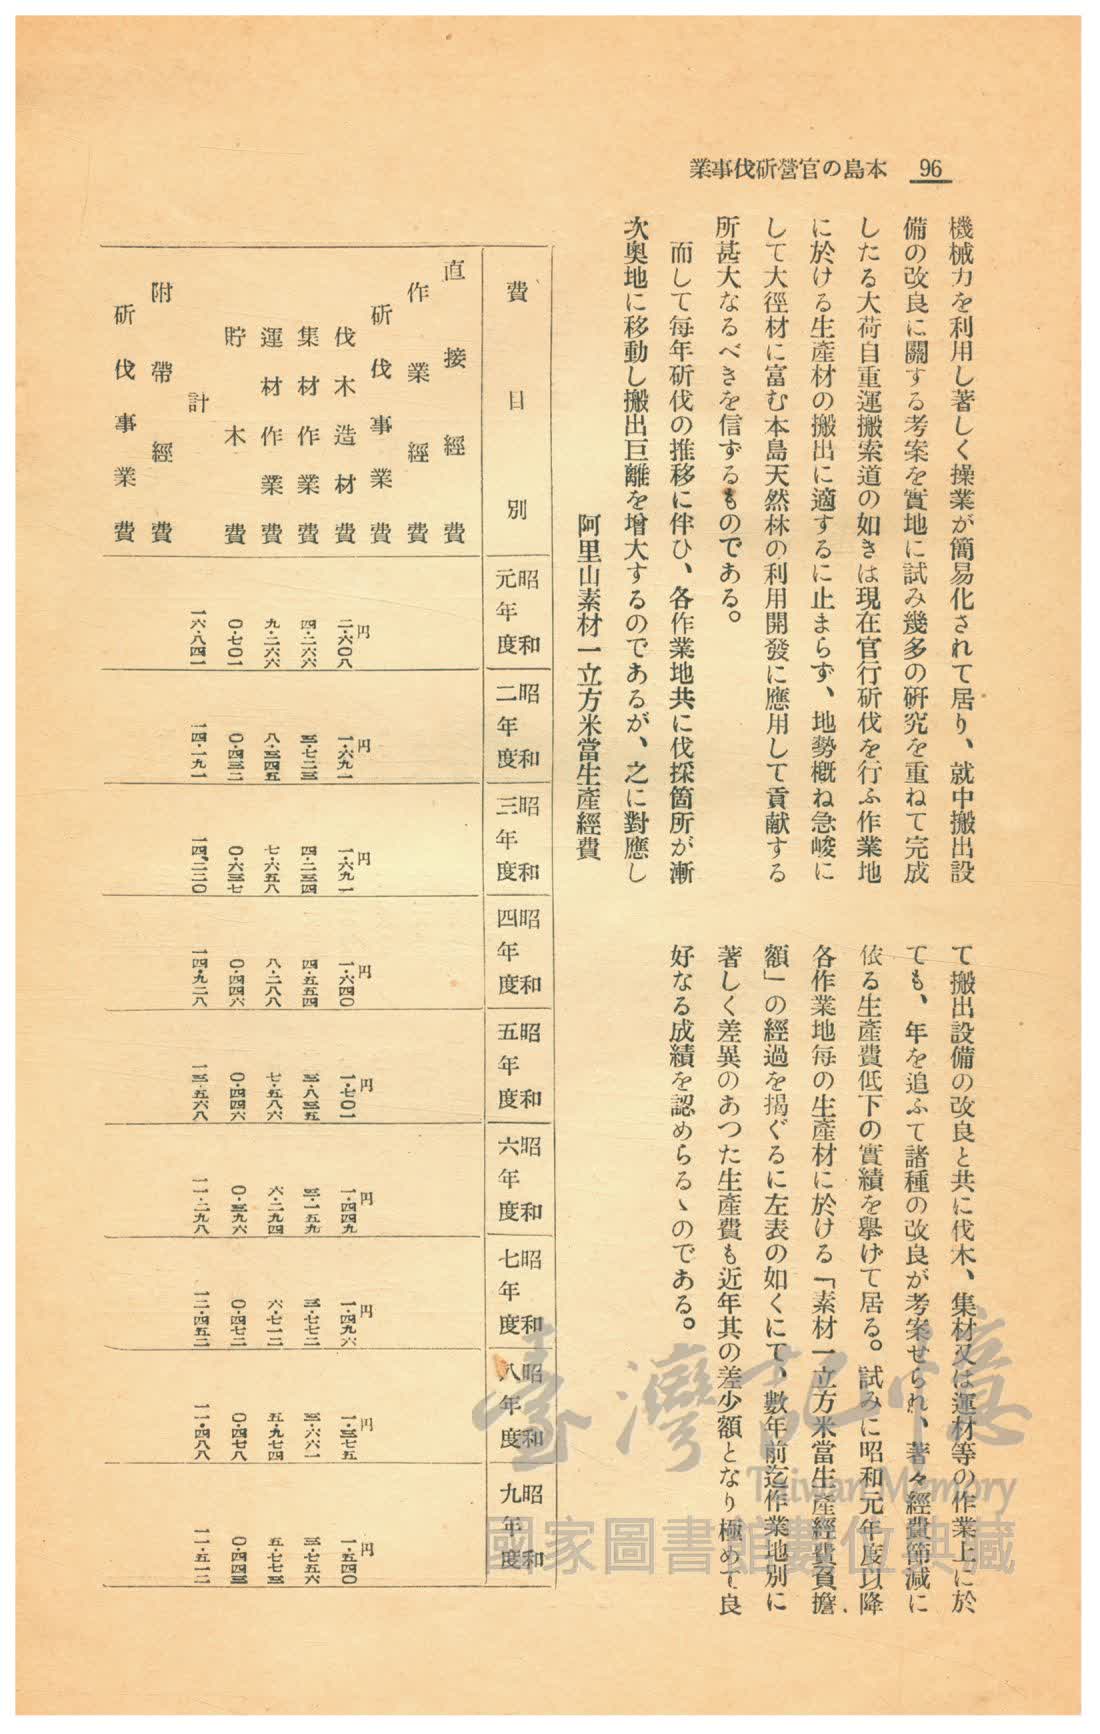 96 本島の官營斫伐事業
機械力を利用し著しく操業が簡易化されて居り、就中搬出設
備の改良に關する考案を實地に試み幾多の硏究を重ねて完成
したる大荷自重運搬索道の如きは現在官行斫伐を行ふ作業地
に於ける生產材の搬出に適するに止まらず、地勢槪ね急峻に
して大徑材に富む本島天然林の利用開發に應用して貢献する
所甚大なるべきを信ずるものである。
而して每年斫伐の推移に伴ひ、各作業地共に伐採箇所が漸
次奧地に移動し搬出巨離を增大するのであるが、之に對應し
て搬出設備の改良と共に伐木、集材又は運材等の作業上に於
ても、年を追ふて諸種の改良が考案せられ、著々經費節減に
依る生產費低下の實績を擧げて居る。試みに昭和元年度以降
各作業地每の生產材に於ける「素材一立方米當生產經費負擔
額」の經過を揭ぐるに左表の如くにて、數年前迄作業地別に
著しく差異のあつた生產費も近年其の差少額となり極めて良
好なる成績を認めらるゝのである。
阿里山素材一立方米當生產經費
費目別 昭和元年度 昭和二年度 昭和三年度 昭和四年度 昭和五年度 昭和六年度 昭和七年度 昭和八年度 昭和九年度
直接經費
作業經費
斫伐事業費
伐木造材費 円二・六〇八 円一・六九一 円一・六九一 円一・六四〇 円一・七〇一 円一・四四九 円一・四九六 円一・三七五 円一・五四〇
集材作業費 四・二六六 三・七二三 四・二三四 四・五五四 三・八三五 三・一五九 三・七七二 三・六六一 三・七五六
運材作業費 九・二六六 八・三四五 七・六五八 八・二八八 七・五八六 六・二九四 六・七一二 五・九七四 五・七七三
貯木費 〇・七〇一 〇・四三二 〇・六三七 〇・四四六 〇・四四六 〇・三九六 〇・四七二 〇・四七八 〇・四四三
計 一六・八四一 一四・一九一 一四・二二〇 一四・九二八 一三・五六八 一一・二九八 一二・四五二 一一・四八八 一一・五一二
附帶經費
斫伐事業費
臺灣記憶
Taiwan Memory
國家圖書館數位典藏